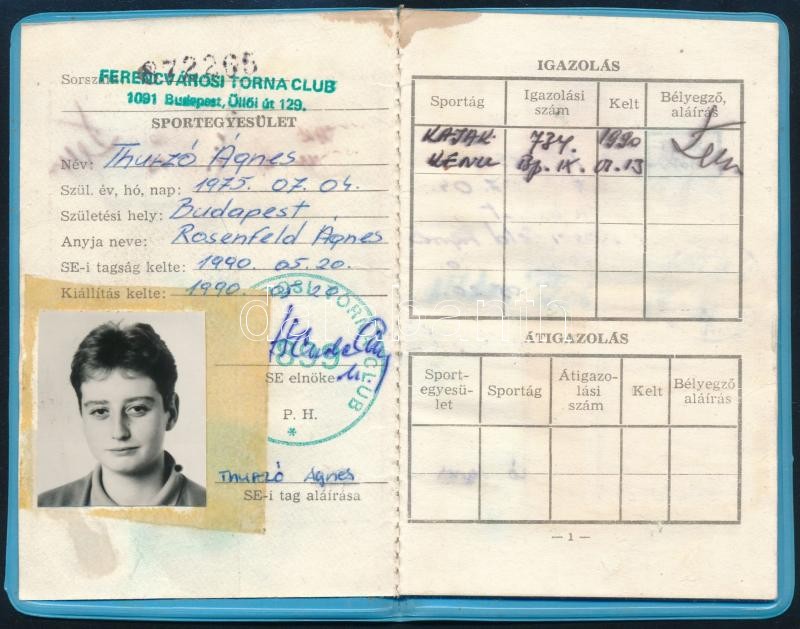 Sorszám 072265
FERENCVÁROSI TORNA CLUB
1091 Budapest, Üllői út 129.
SPORTEGYESÜLET
Név: Thurzó Ágnes
Szül. év, hó, nap: 1975. 07. 04.
Születési hely: Budapest
Anyja neve: Rosenfeld Ágnes
SE-i tagság kelte: 1990. 05. 20.
Kiállítás kelte: 1990.
TORNA CLUB
899
SE elnöke
P. H.
*
Thurzó Ágnes
SE-i tag aláírása
IGAZOLÁS
Sportág Igazolási szám Kelt Bélyegző, aláírás
KAJAK 734. 1990
KENU Bp. IX.
ÁTIGAZOLÁS
Sport-egyesü-let Sportág Átigazo-lási szám Kelt Bélyegző, aláírás
— 1 —